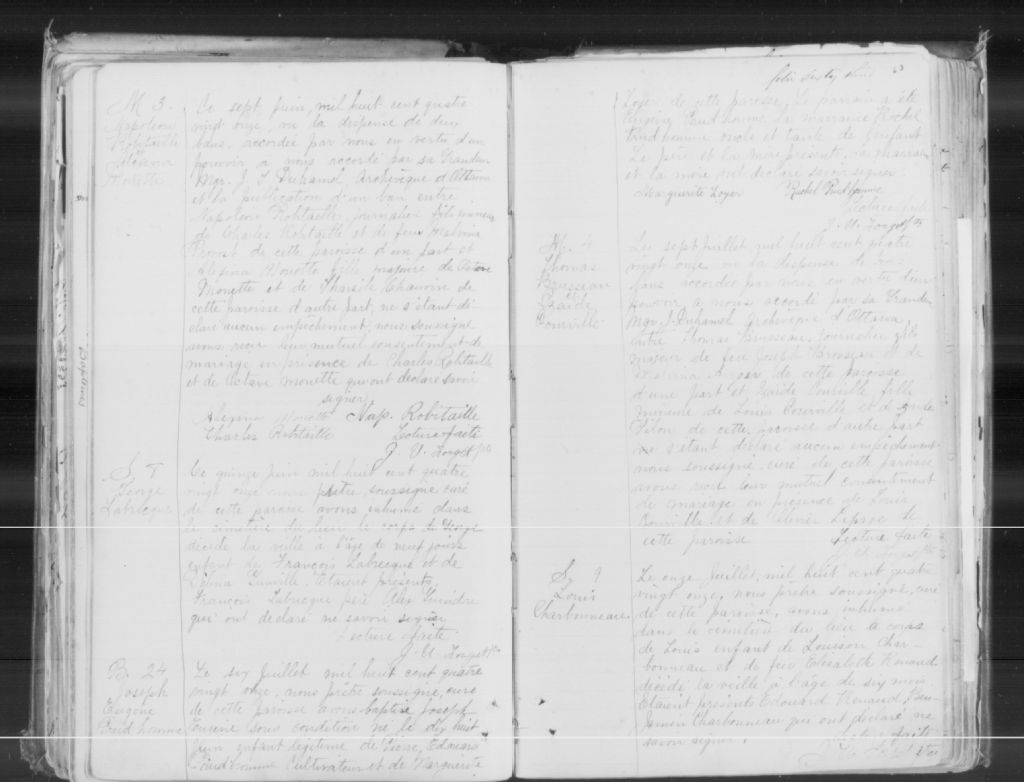 M 3.
Napoleon
Robitaille
Monette
Ce sept Juin mil huit cent quatre
vingt onze, vu la dispense de deux
bans, accordée par nous en vertu d'un
pouvoir a nous accordé par sa Grandeur
Mgr. J T Duhamel, Archevêque d'Ottawa
et la publication d'un ban entre
Napoleon Robitaille, journalier fils mineur
de Charles Robitaille et de feue Melvina
de cette paroisse d'un part et
Alexina Monette fille majeure de Octave
Monette et de Tharsile Chauvin de
cette paroisse d'autre part, ne s'étant dé
claré aucun empechement, nous soussigné
avons reçu leur mutuel consentement de
mariage en présence de Charles Robitaille
et de Octave Monette qui ont declaré savoir
signer
Alexina Monette Nap. Robitaille
Charles Robitaille Lecture faite
J. U. Forget ptre
S 8
George
Labrecque
Ce quinze Juin mil huit cent quatre
vingt onze nous prêtre, soussigné curé
de cette paroisse avons inhumé dans
le cimetière du lieu le corps de George
décédé la veille à l'âge de neuf jours
enfant de François Labrecque et de
Etaient présents,
François Labrecque père Alex
qui ont declaré ne savoir signer
Lecture faite
J. U. Forget ptre
B. 24
Joseph
Eugène
Prud'homme
Le six Juillet mil huit cent quatre
vingt onze, nous prêtre soussigné, curé
de cette paroisse avons baptisé Joseph
Eugène sous condition né le dix huit
Juin enfant légitime de Pierre Edouard
Prud'homme Cultivateur et de Marguerite
folio sixty third 63
Loyer de cette paroisse. Le parrain a été
Eugène Prudhomme La marraine Rachel
Prud'homme oncle et tante de l'enfant
Le père et la mère présents, la marraine
et la mère ont declaré savoir signer
Marguerite Loyer Rachel Prudhomme
Lecture faite
J. U. Forget ptre
M. 4
Thomas
Brusseau
Zéaïde
Courville
Le sept Juillet mil huit cent quatre
vingt onze vu la dispense de
bans accordée par nous en vertu d'un
pouvoir a nous accordé par sa Grandeur
Mgr. J. Duhamel Archevêque d'Ottawa,
entre Thomas Brusseau, journalier fils
majeur de feu Joseph Brosseau et de
de cette paroisse
d'une part et Zéaïde Courville fille
mineure de Louis Courville et d
Filon de cette paroisse d'autre part
ne s'étant déclaré aucun empêchement
nous soussigné curé de cette paroisse
avons reçu leur mutuel consentement
de mariage en présence de Louis
Courville et de Olivier Lepage de
cette paroisse Lecture faite
J. U. Forget ptre
S. 9
Louis
Charbonneau
Le onze Juillet, mil huit cent quatre
vingt onze, nous prêtre soussigné, curé
de cette paroisse, avons inhumé
dans le cimetière du lieu le corps
de Louis enfant de Louison Char-
bonneau et de feue Elisabeth Renaud
décédé la veille à l'âge de six mois
Etaient présents Edouard Renaud, Ben-
jamin Charbonneau qui ont declaré ne
savoir signer. Lecture faite
J. U. Forget ptre